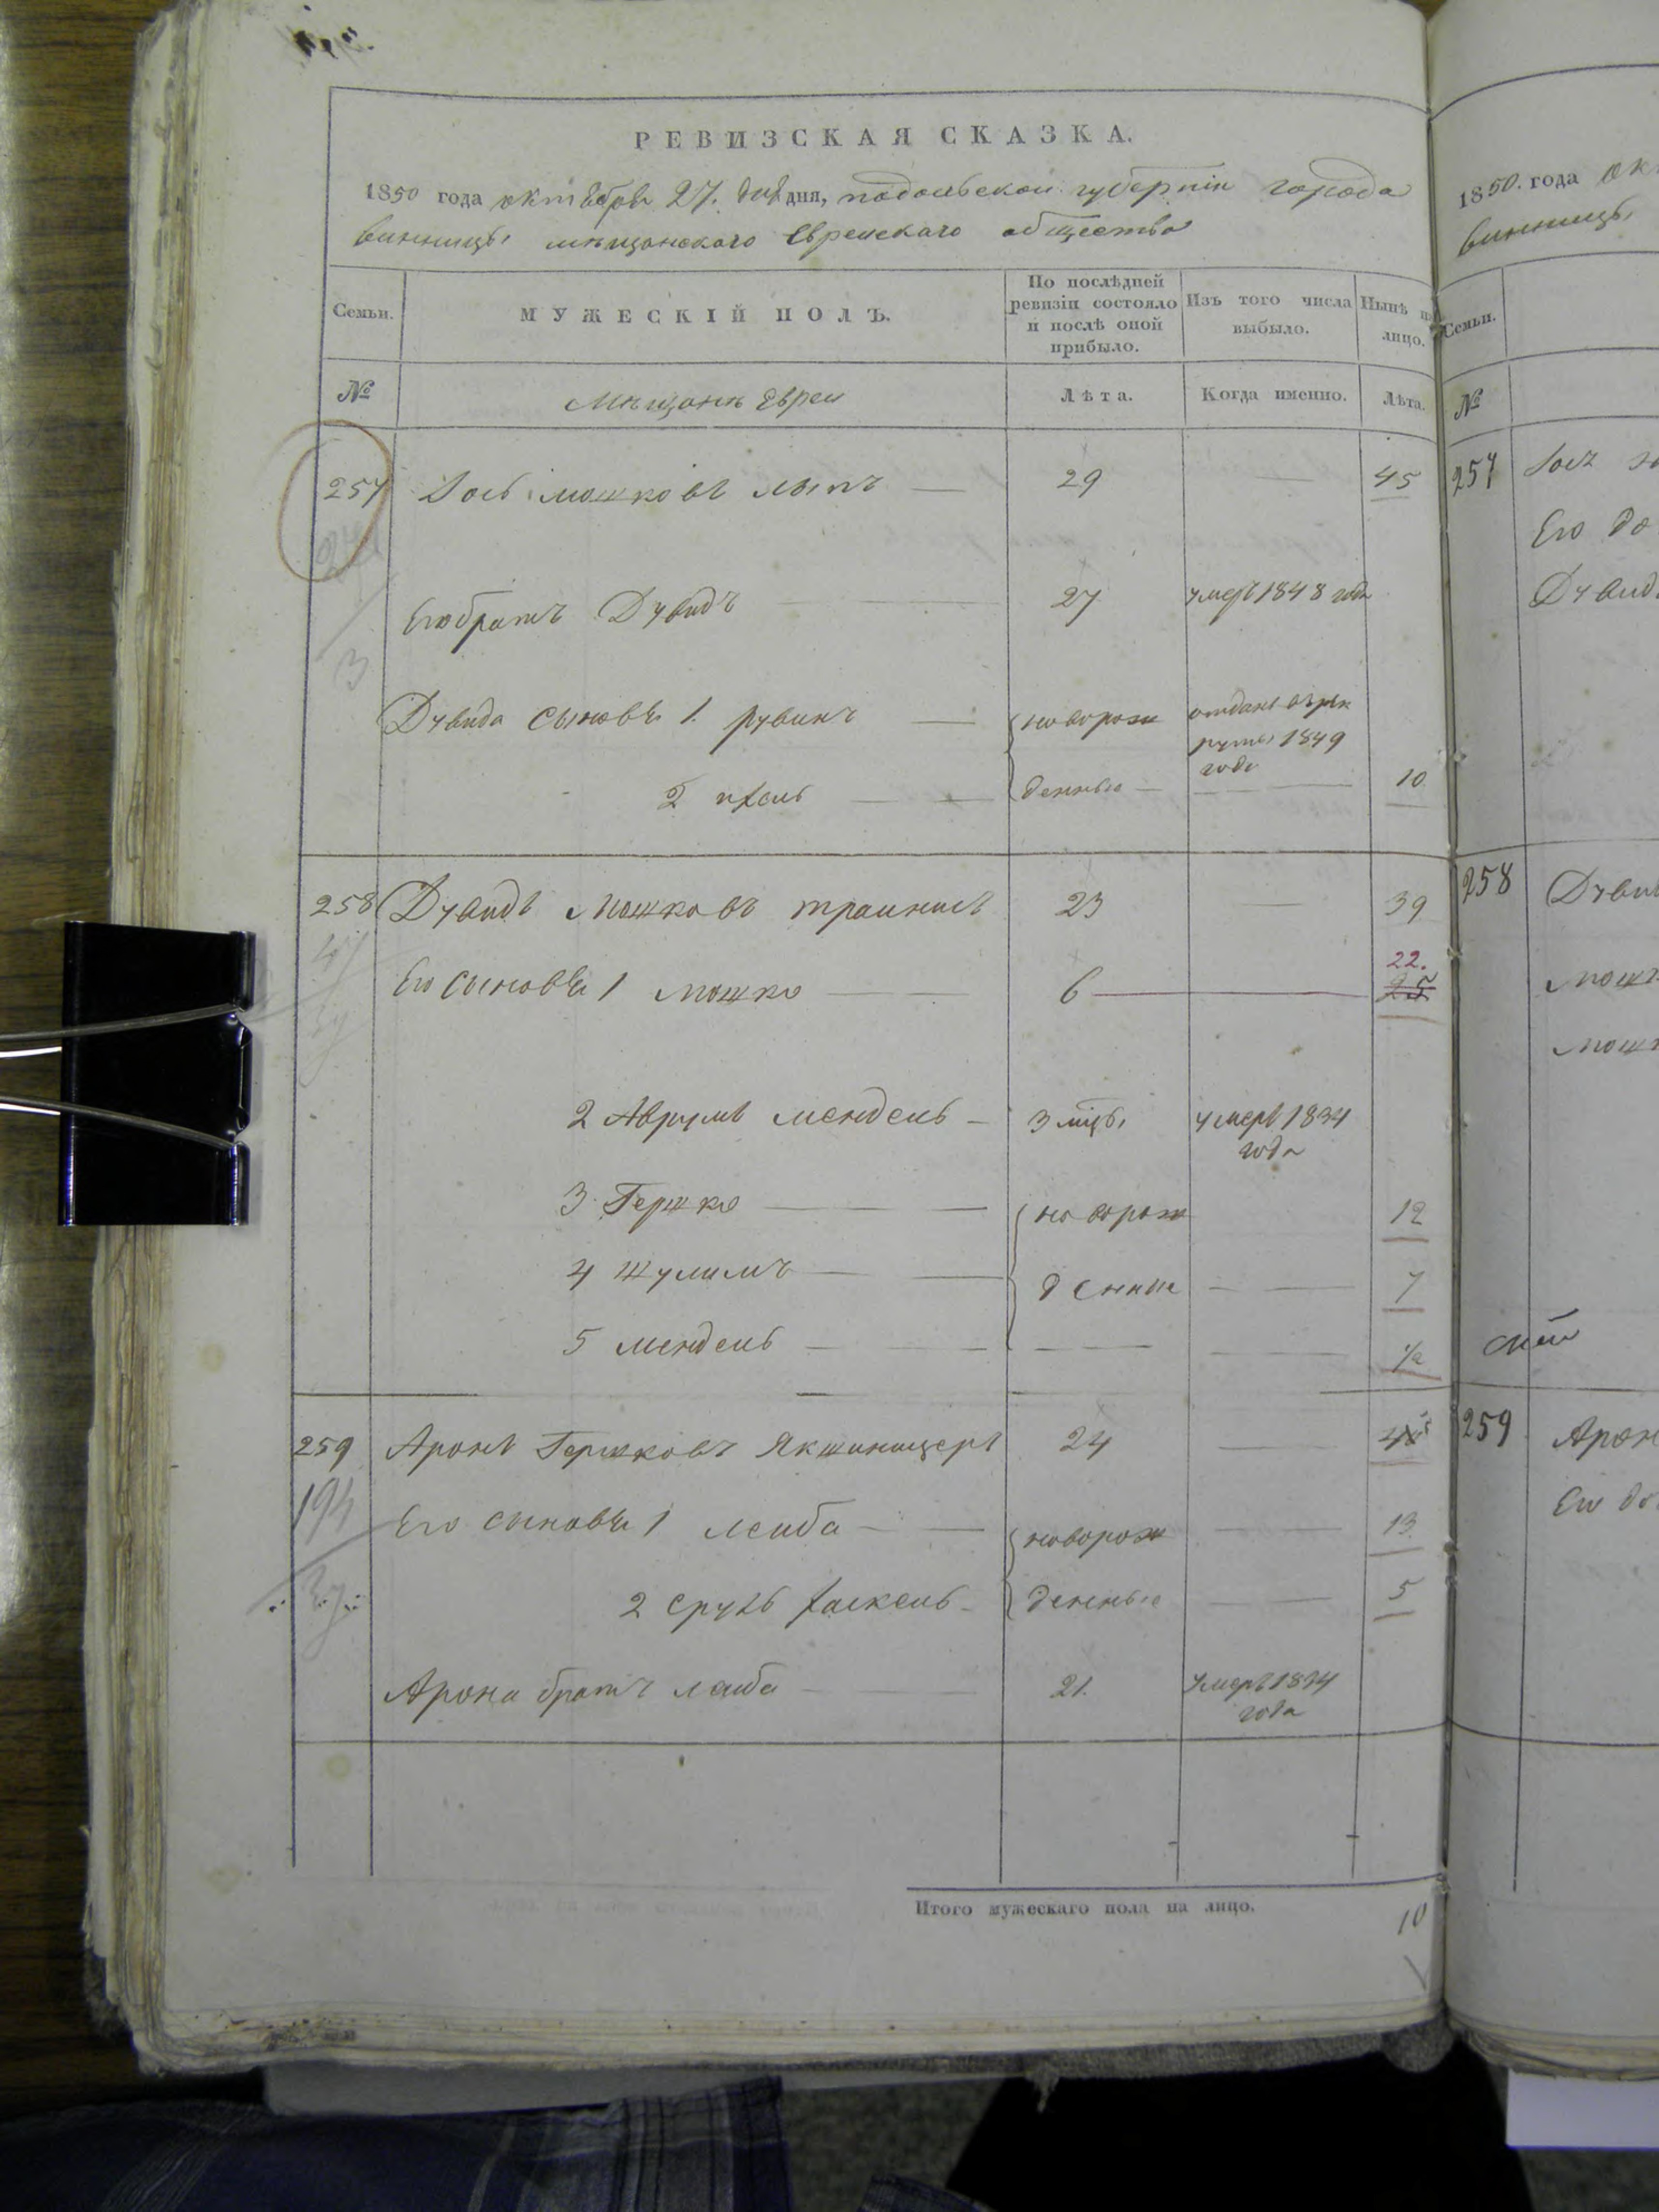 РЕВИЗСКАЯ СКАЗКА.
1850 года октября 27. дня, подольской губернiи города
винницы мѣщанскаго Еврейскаго общества
Семьи. МУЖЕСКIЙ ПОЛЪ. По послѣдней ревизiи состояло и послѣ оной прибыло. Изъ того числа выбыло. Нынѣ на лицо.
№ Мѣщанѣ Евреи Лѣта. Когда именно. Лѣта.
257 мошковъ 29 — 45
Его братъ Дувидъ 27 умеръ 1848 года
3
Дувида сыновья 1. рувинъ новорож отданъ въ рек
руты 1849
года
2 денные — 10
258 Дувидъ Мошковъ 23 — 39
22.
Его сыновья 1 мошко 6 25
2 Аврумъ мендель 3 мцы умеръ 1834
года
3 Гершко новорож 12
4 шулимъ денные 7
5 мендель 1/2
259 Аронъ Гершковъ Якшиницеръ 24
194
Его сыновья 1 лейба новорож 13
2 сруль денные 5
Арона братъ лейба 21. умеръ 1834
года
Итого мужескаго пола на лицо. 10
1850. года ок
винницы
Семьи.
№
257
Его до
Дувид
258 Дувид
мошк
мошк
259 Арон
Его до